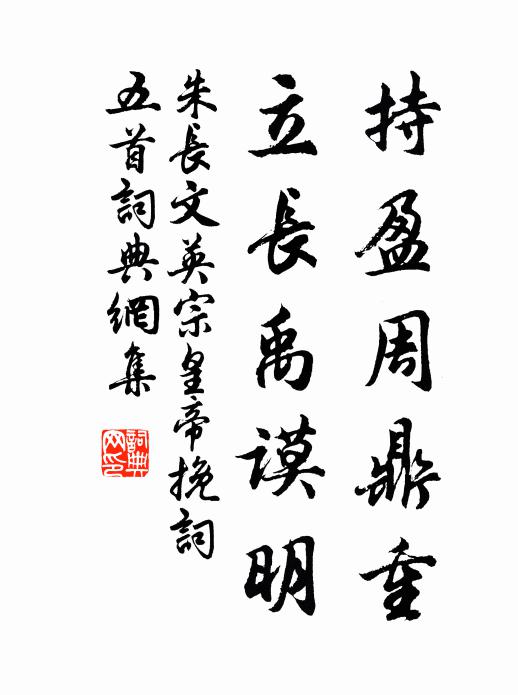 持盈周鼎重
立長禹謨明
朱長文英宗皇帝挽詞
五首詞典網集
詞典
网印